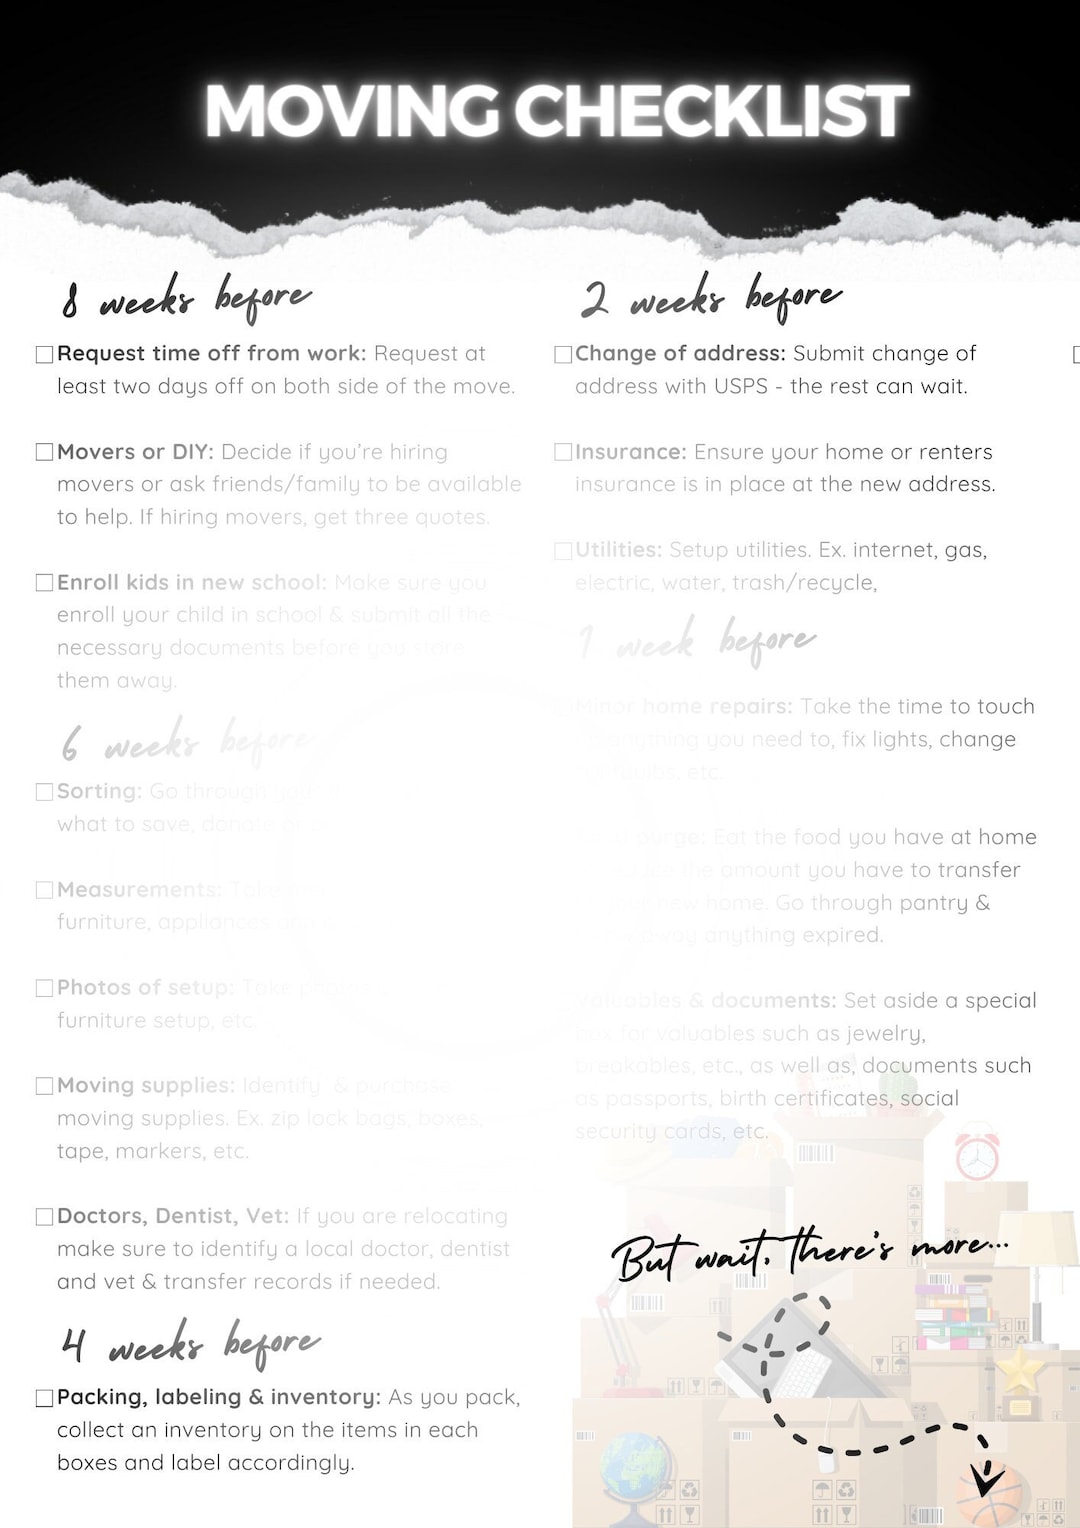 MOVING CHECKLIST
8 weeks before
Request time off from work: Request at
least two days off on both side of the move.
Movers or DIY: Decide if you're hiring
movers or ask friends/family to be available
to help. If hiring movers, get three quotes.
Enroll kids in new school: Make sure you
enroll your child in school & submit all the
necessary documents before you store
them away.
6 weeks before
Sorting: Go through
what to save, donate
Measurements: Take
furniture, appliances
Photos of setup: Take
furniture setup, etc.
Moving supplies: Identify & purchase
moving supplies. Ex. zip lock bags, boxes,
tape, markers, etc.
Doctors, Dentist, Vet: If you are relocating
make sure to identify a local doctor, dentist
and vet & transfer records if needed.
4 weeks before
Packing, labeling & inventory: As you pack,
collect an inventory on the items in each
boxes and label accordingly.
2 weeks before
Change of address: Submit change of
address with USPS - the rest can wait.
Insurance: Ensure your home or renters
insurance is in place at the new address.
Utilities: Setup utilities. Ex. internet, gas,
electric, water, trash/recycle,
1 week before
Minor home repairs: Take the time to touch
anything you need to, fix lights, change
etc.
purge: Eat the food you have at home
the amount you have to transfer
new home. Go through pantry &
away anything expired.
Valuables & documents: Set aside a special
box for valuables such as jewelry,
breakables, etc., as well as, documents such
as passports, birth certificates, social
security cards, etc.
But wait, there's more...